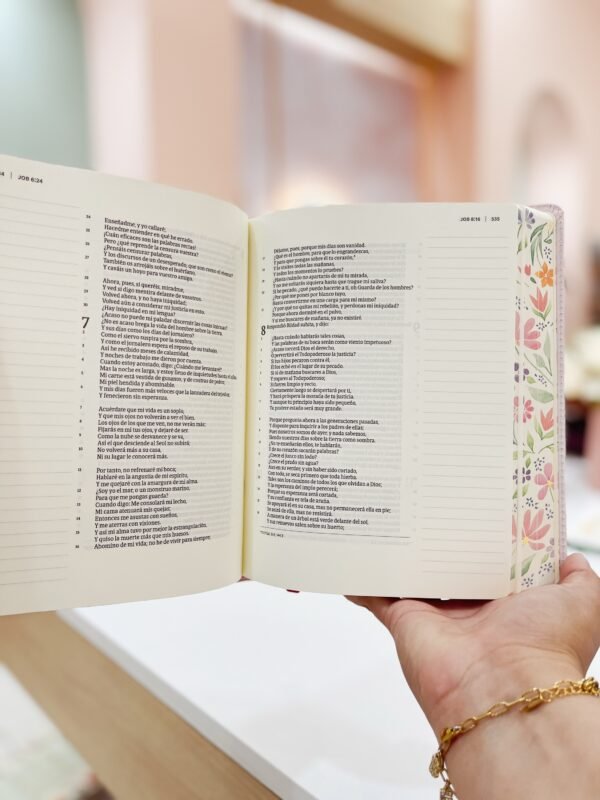 JOB 6:24
24 Enseñadme, y yo callaré;
Hacedme entender en qué he errado.
25 ¡Cuán eficaces son las palabras rectas!
Pero ¿qué reprende la censura vuestra?
26 ¿Pensáis censurar palabras,
Y los discursos de un desesperado, que son como el viento?
27 También os arrojáis sobre el huérfano,
Y caváis un hoyo para vuestro amigo.
28 Ahora, pues, si queréis, miradme,
Y ved si digo mentira delante de vosotros.
29 Volved ahora, y no haya iniquidad;
Volved aún a considerar mi justicia en esto.
30 ¿Hay iniquidad en mi lengua?
¿Acaso no puede mi paladar discernir las cosas inicuas?
7 ¿No es acaso brega la vida del hombre sobre la tierra,
Y sus días como los días del jornalero?
Como el siervo suspira por la sombra,
Y como el jornalero espera el reposo de su trabajo,
Así he recibido meses de calamidad,
Y noches de trabajo me dieron por cuenta.
Cuando estoy acostado, digo: ¿Cuándo me levantaré?
Mas la noche es larga, y estoy lleno de inquietudes hasta el alba.
Mi carne está vestida de gusanos, y de costras de polvo;
Mi piel hendida y abominable.
Y mis días fueron más veloces que la lanzadera del tejedor,
Y fenecieron sin esperanza.
7 Acuérdate que mi vida es un soplo,
Y que mis ojos no volverán a ver el bien.
8 Los ojos de los que me ven, no me verán más;
Fijarás en mí tus ojos, y dejaré de ser.
9 Como la nube se desvanece y se va,
Así el que desciende al Seol no subirá;
10 No volverá más a su casa,
Ni su lugar le conocerá más.
11 Por tanto, no refrenaré mi boca;
Hablaré en la angustia de mi espíritu,
Y me quejaré con la amargura de mi alma.
12 ¿Soy yo el mar, o un monstruo marino,
Para que me pongas guarda?
13 Cuando digo: Me consolará mi lecho,
Mi cama atenuará mis quejas;
14 Entonces me asustas con sueños,
Y me aterras con visiones.
15 Y así mi alma tuvo por mejor la estrangulación,
Y quiso la muerte más que mis huesos.
16 Abomino de mi vida; no he de vivir para siempre;
JOB 8:16 | 535
Déjame, pues, porque mis días son vanidad.
17 ¿Qué es el hombre, para que lo engrandezcas,
Y para que pongas sobre él tu corazón,
18 Y lo visites todas las mañanas,
Y todos los momentos lo pruebes?
19 ¿Hasta cuándo no apartarás de mí tu mirada,
Y no me soltarás siquiera hasta que trague mi saliva?
20 Si he pecado, ¿qué puedo hacerte a ti, oh Guarda de los hombres?
¿Por qué me pones por blanco tuyo,
Hasta convertirme en una carga para mí mismo?
21 ¿Y por qué no quitas mi rebelión, y perdonas mi iniquidad?
Porque ahora dormiré en el polvo,
Y si me buscares de mañana, ya no existiré.
8 Respondió Bildad suhita, y dijo:
¿Hasta cuándo hablarás tales cosas,
Y las palabras de tu boca serán como viento impetuoso?
¿Acaso torcerá Dios el derecho,
O pervertirá el Todopoderoso la justicia?
Si tus hijos pecaron contra él,
Él los echó en el lugar de su pecado.
Si tú de mañana buscares a Dios,
Y rogares al Todopoderoso;
Si fueres limpio y recto,
Ciertamente luego se despertará por ti,
Y hará próspera la morada de tu justicia.
Y aunque tu principio haya sido pequeño,
Tu postrer estado será muy grande.
Porque pregunta ahora a las generaciones pasadas,
Y disponte para inquirir a los padres de ellas;
Pues nosotros somos de ayer, y nada sabemos,
Siendo nuestros días sobre la tierra como sombra.
¿No te enseñarán ellos, te hablarán,
Y de su corazón sacarán palabras?
¿Crece el junco sin lodo?
¿Crece el prado sin agua?
Aun en su verdor, y sin haber sido cortado,
Con todo, se seca primero que toda hierba.
Tales son los caminos de todos los que olvidan a Dios;
Y la esperanza del impío perecerá;
Porque su esperanza será cortada,
Y su confianza es tela de araña.
Se apoyará él en su casa, mas no permanecerá ella en pie;
Se asirá de ella, mas no resistirá.
A manera de un árbol está verde delante del sol,
Y sus renuevos salen sobre su huerto;